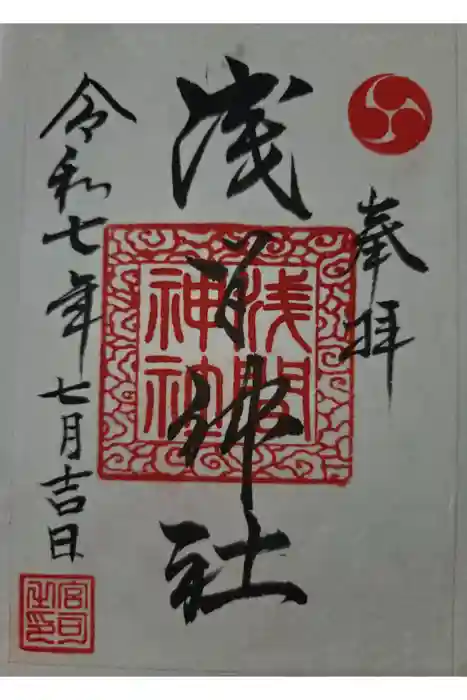 奉拝
浅間神社
浅間
神社
令和七年七月吉日
宮司之印